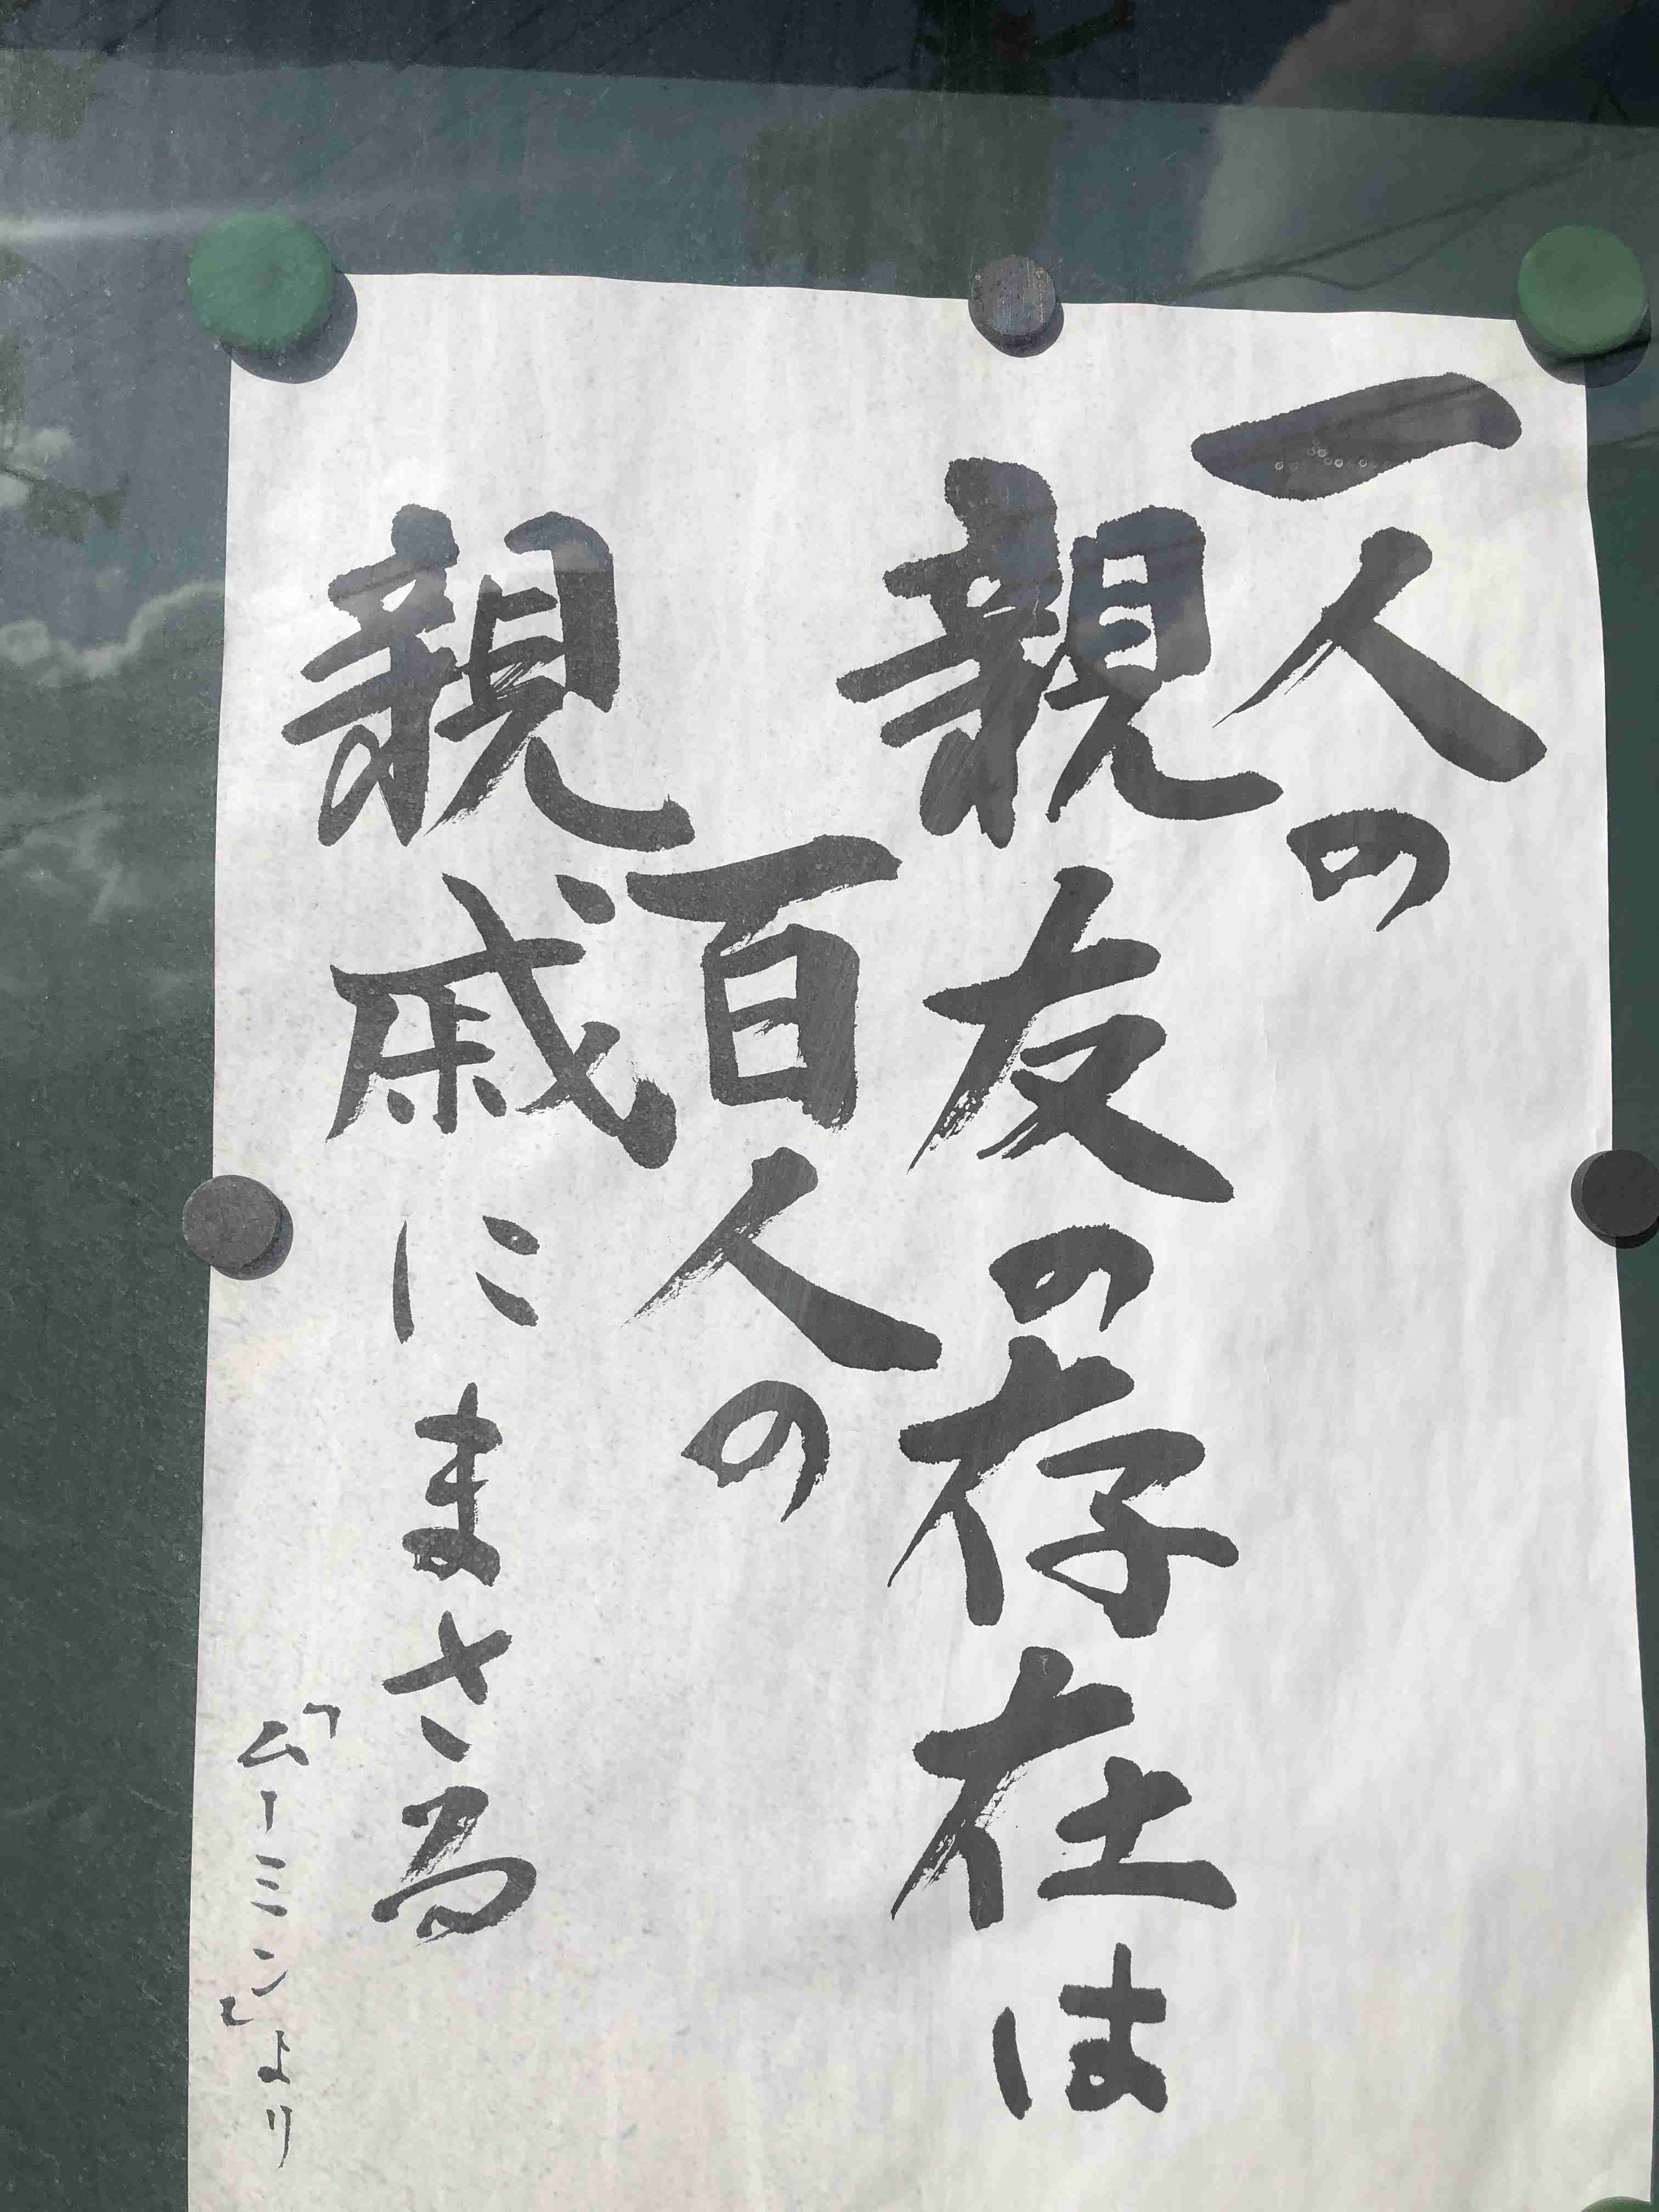 一人の
親友の存在は
百人の
親戚にまさる
「ムーミン」より